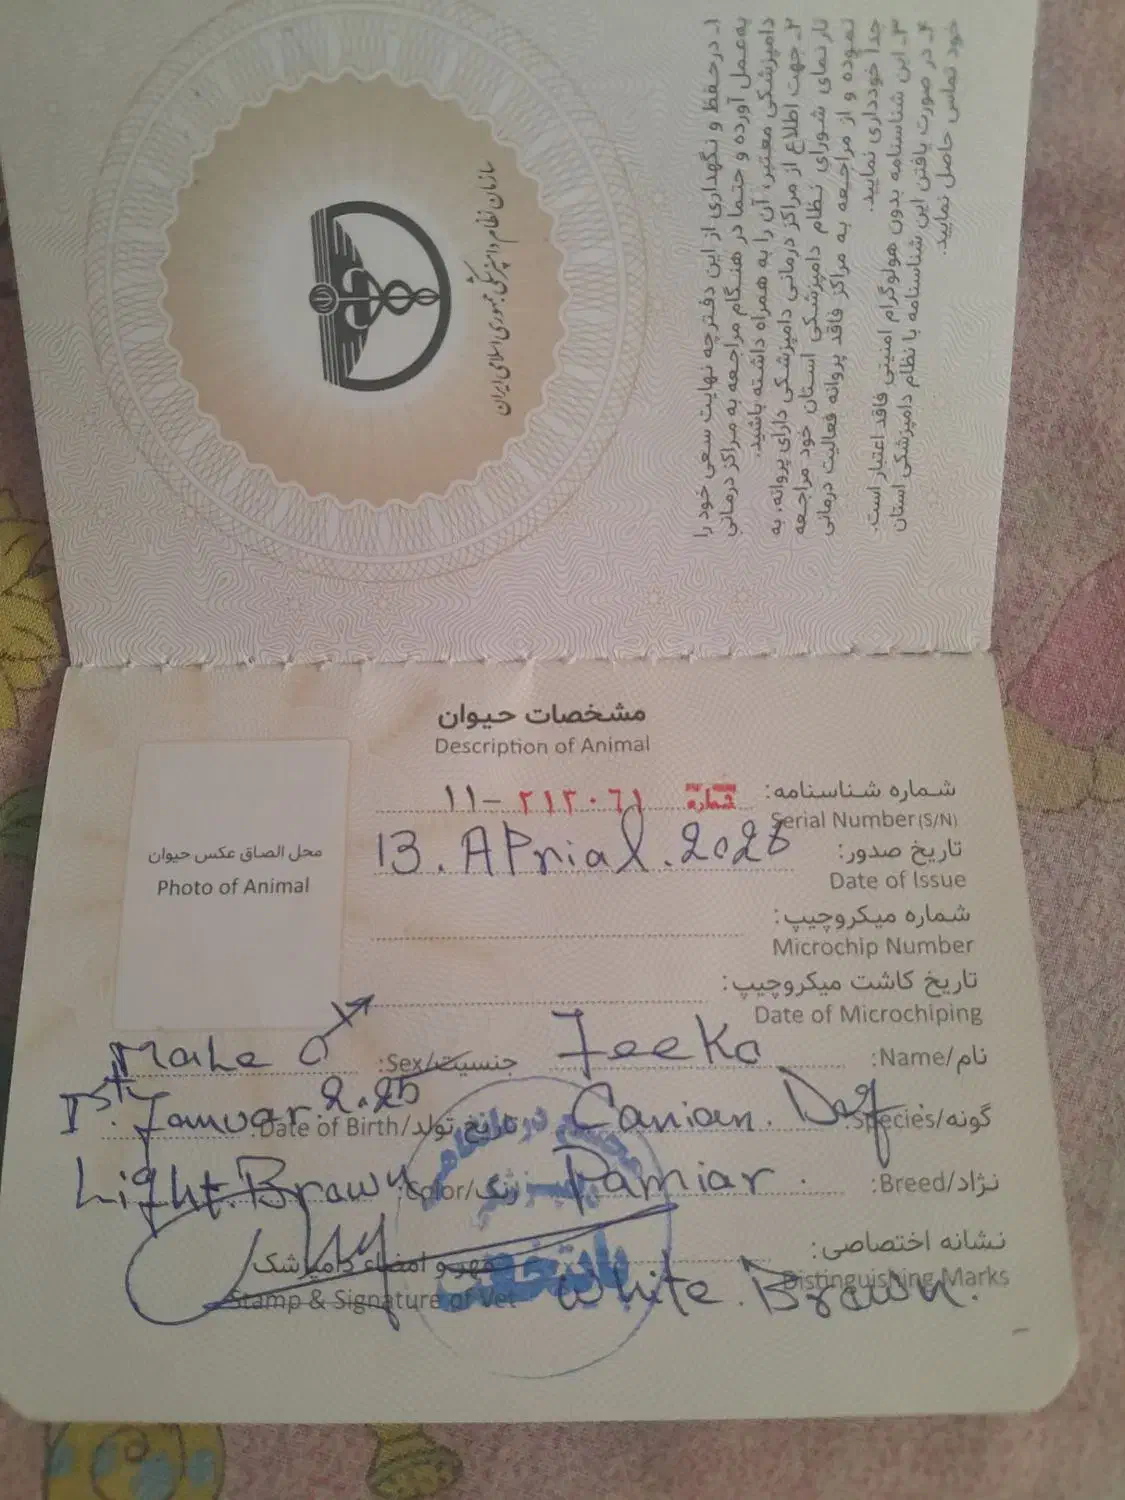 سازمان نظام دامپزشکی جمهوری اسلامی ایران
۱ـ درحفظ و نگهداری از این دفترچه نهایت سعی خود را
به‌عمل آورده و حتما در هنگام مراجعه به مراکز درمانی
دامپزشکی معتبر، آن را به همراه داشته باشید.
۲ـ جهت اطلاع از مراکز درمانی دامپزشکی دارای پروانه، به
تارنمای شورای نظام دامپزشکی استان خود مراجعه
نموده و از مراجعه به مراکز فاقد پروانه فعالیت درمانی
جدا خودداری نمایید.
۳ـ این شناسنامه بدون هولوگرام امنیتی فاقد اعتبار است.
۴ـ در صورت یافتن این شناسنامه با نظام دامپزشکی استان
خود تماس حاصل نمایید.
مشخصات حیوان
Description of Animal
محل الصاق عکس حیوان
Photo of Animal
شماره شناسنامه: شماره ۱۱-۲۱۲۰۶۱
Serial Number (S/N)
تاریخ صدور: 13. APrial. 2026
Date of Issue
شماره میکروچیپ:
Microchip Number
تاریخ کاشت میکروچیپ:
Date of Microchiping
نام/Name: Jeeko
جنسیت/Sex: Male ♂
گونه/Species: Canian. Dog
تاریخ تولد/Date of Birth: 1st. Januar. 2025
نژاد/Breed: Pamiar.
رنگ/Color: Light. Brawn
نشانه اختصاصی:
Distinguishing Marks White. Brawn.
مهر و امضاء دامپزشک
Stamp & Signature of Vet
پایتخت